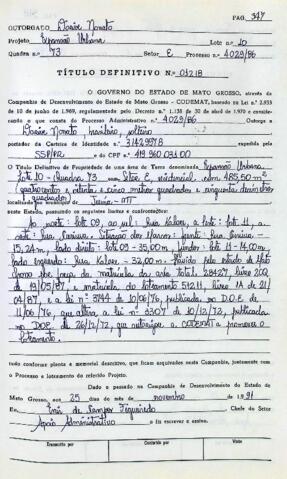 PAG. 347
OUTORGADO Dorise Nonato
Projeto Expansão Urbana Lote no 10
Quadra no 73 Setor E Processo no 4029/86
TÍTULO DEFINITIVO No
O GOVERNO DO ESTADO DE MATO GROSSO, através da
Companhia de Desenvolvimento do Estado de Mato Grosso - CODEMAT, baseado na Lei n.o 2.933
de 10 de junho de 1969, regulamentado pelo Decreto n.o 1.138 de 30 de abril de 1970 e considerando
o que consta do Processo Administrativo n.o 4029/86 Outorga a
Dorise Nonato brasileiro, solteiro
portador da Carteira de Identidade n.o expedida pela
SSP/PR e do CPF n.o
O Título Definitivo de Propriedade de uma área de Terra denominada Expansão Urbana
Lote 10 - Quadra 73 Setor E, residencial, com 485,50 m²
(quatrocentos e oitenta e cinco metros quadrados e cinquenta decímetros
quadrados)
localizada no município de MT
neste Estado, possuindo os seguintes limites e confrontações:
Ao norte: lote 09, ao sul: Rua lote: 11, a
oeste: Rua Situação dos Marcos: frente: Rua
15,24 m lado direito: lote 09 - 35,00 m. fundos: lote 11 - 14,00 m
lado esquerdo: Rua - 32,00 m. pelo estado de Mato
Grosso por força da matrícula da área total. 28427 livro 200
de 19/05/87 e matrícula do loteamento 51211, livro 1A de 21/
04/87. e a lei nº 3744 de 10/06/76, publicada no D.O.E de
11/06/76, que altera a lei nº 3307 de 10/12/72, publicada
no DOE de 26/12/72, que autorizou a CODEMAT a promover o
loteamento.
tudo conforme planta e memorial descritivo, que ficam arquivados nesta Companhia, juntamente com
o Processo a loteamento do referido Projeto.
Dado e passado na Companhia de Desenvolvimento do Estado de
Mato Grosso, aos 25 dias do mês de novembro de 1.991
Eu, Inês de Campos Figueiredo Chefe do Setor
Apoio Administrativo o fiz escrever e assino.
Transcrito por Conferido por Visto